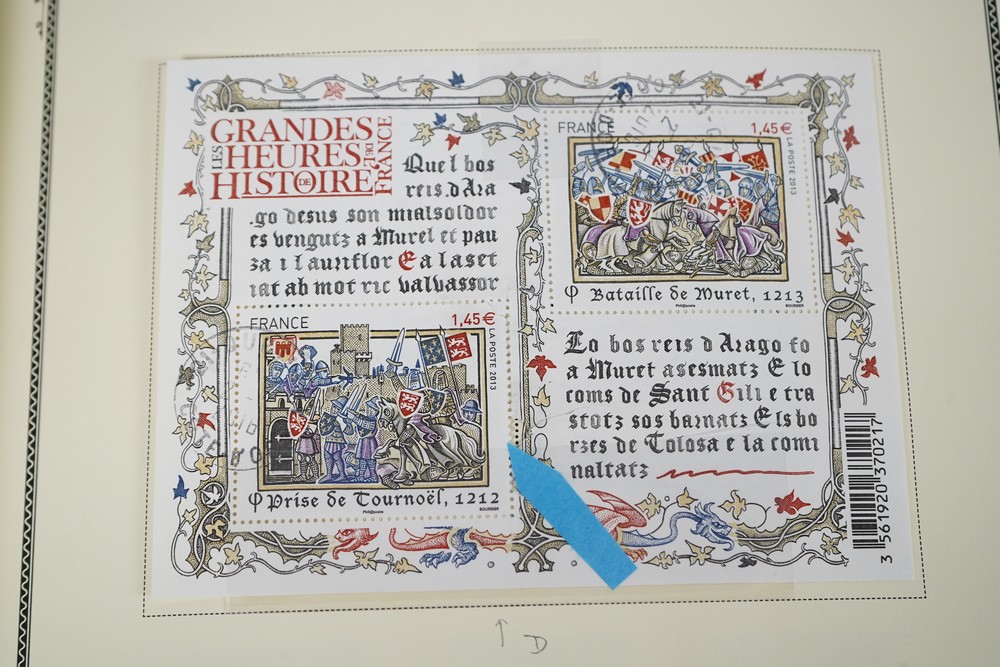 LES GRANDES
HEURES
DE L'HISTOIRE
DE FRANCE
Que l bos
reis d Ara
go desus son mialsoldor
es vengutz a Murel et pau
za i l auriflor E a la set
iat ab mot ric valvassor
FRANCE 1,45€
LA POSTE 2013
φ Bataille de Muret, 1213
Phil@poste BOURBIER
FRANCE 1,45€
LA POSTE 2013
φ Prise de Tournoël, 1212
Phil@poste BOURBIER
Lo bos reis d Arago fo
a Muret asesmatz E lo
coms de Sant Gili e tra
stotz sos barnatz Els bo
rzes de Tolosa e la comi
naltatz
3 561920 370217
↑ D